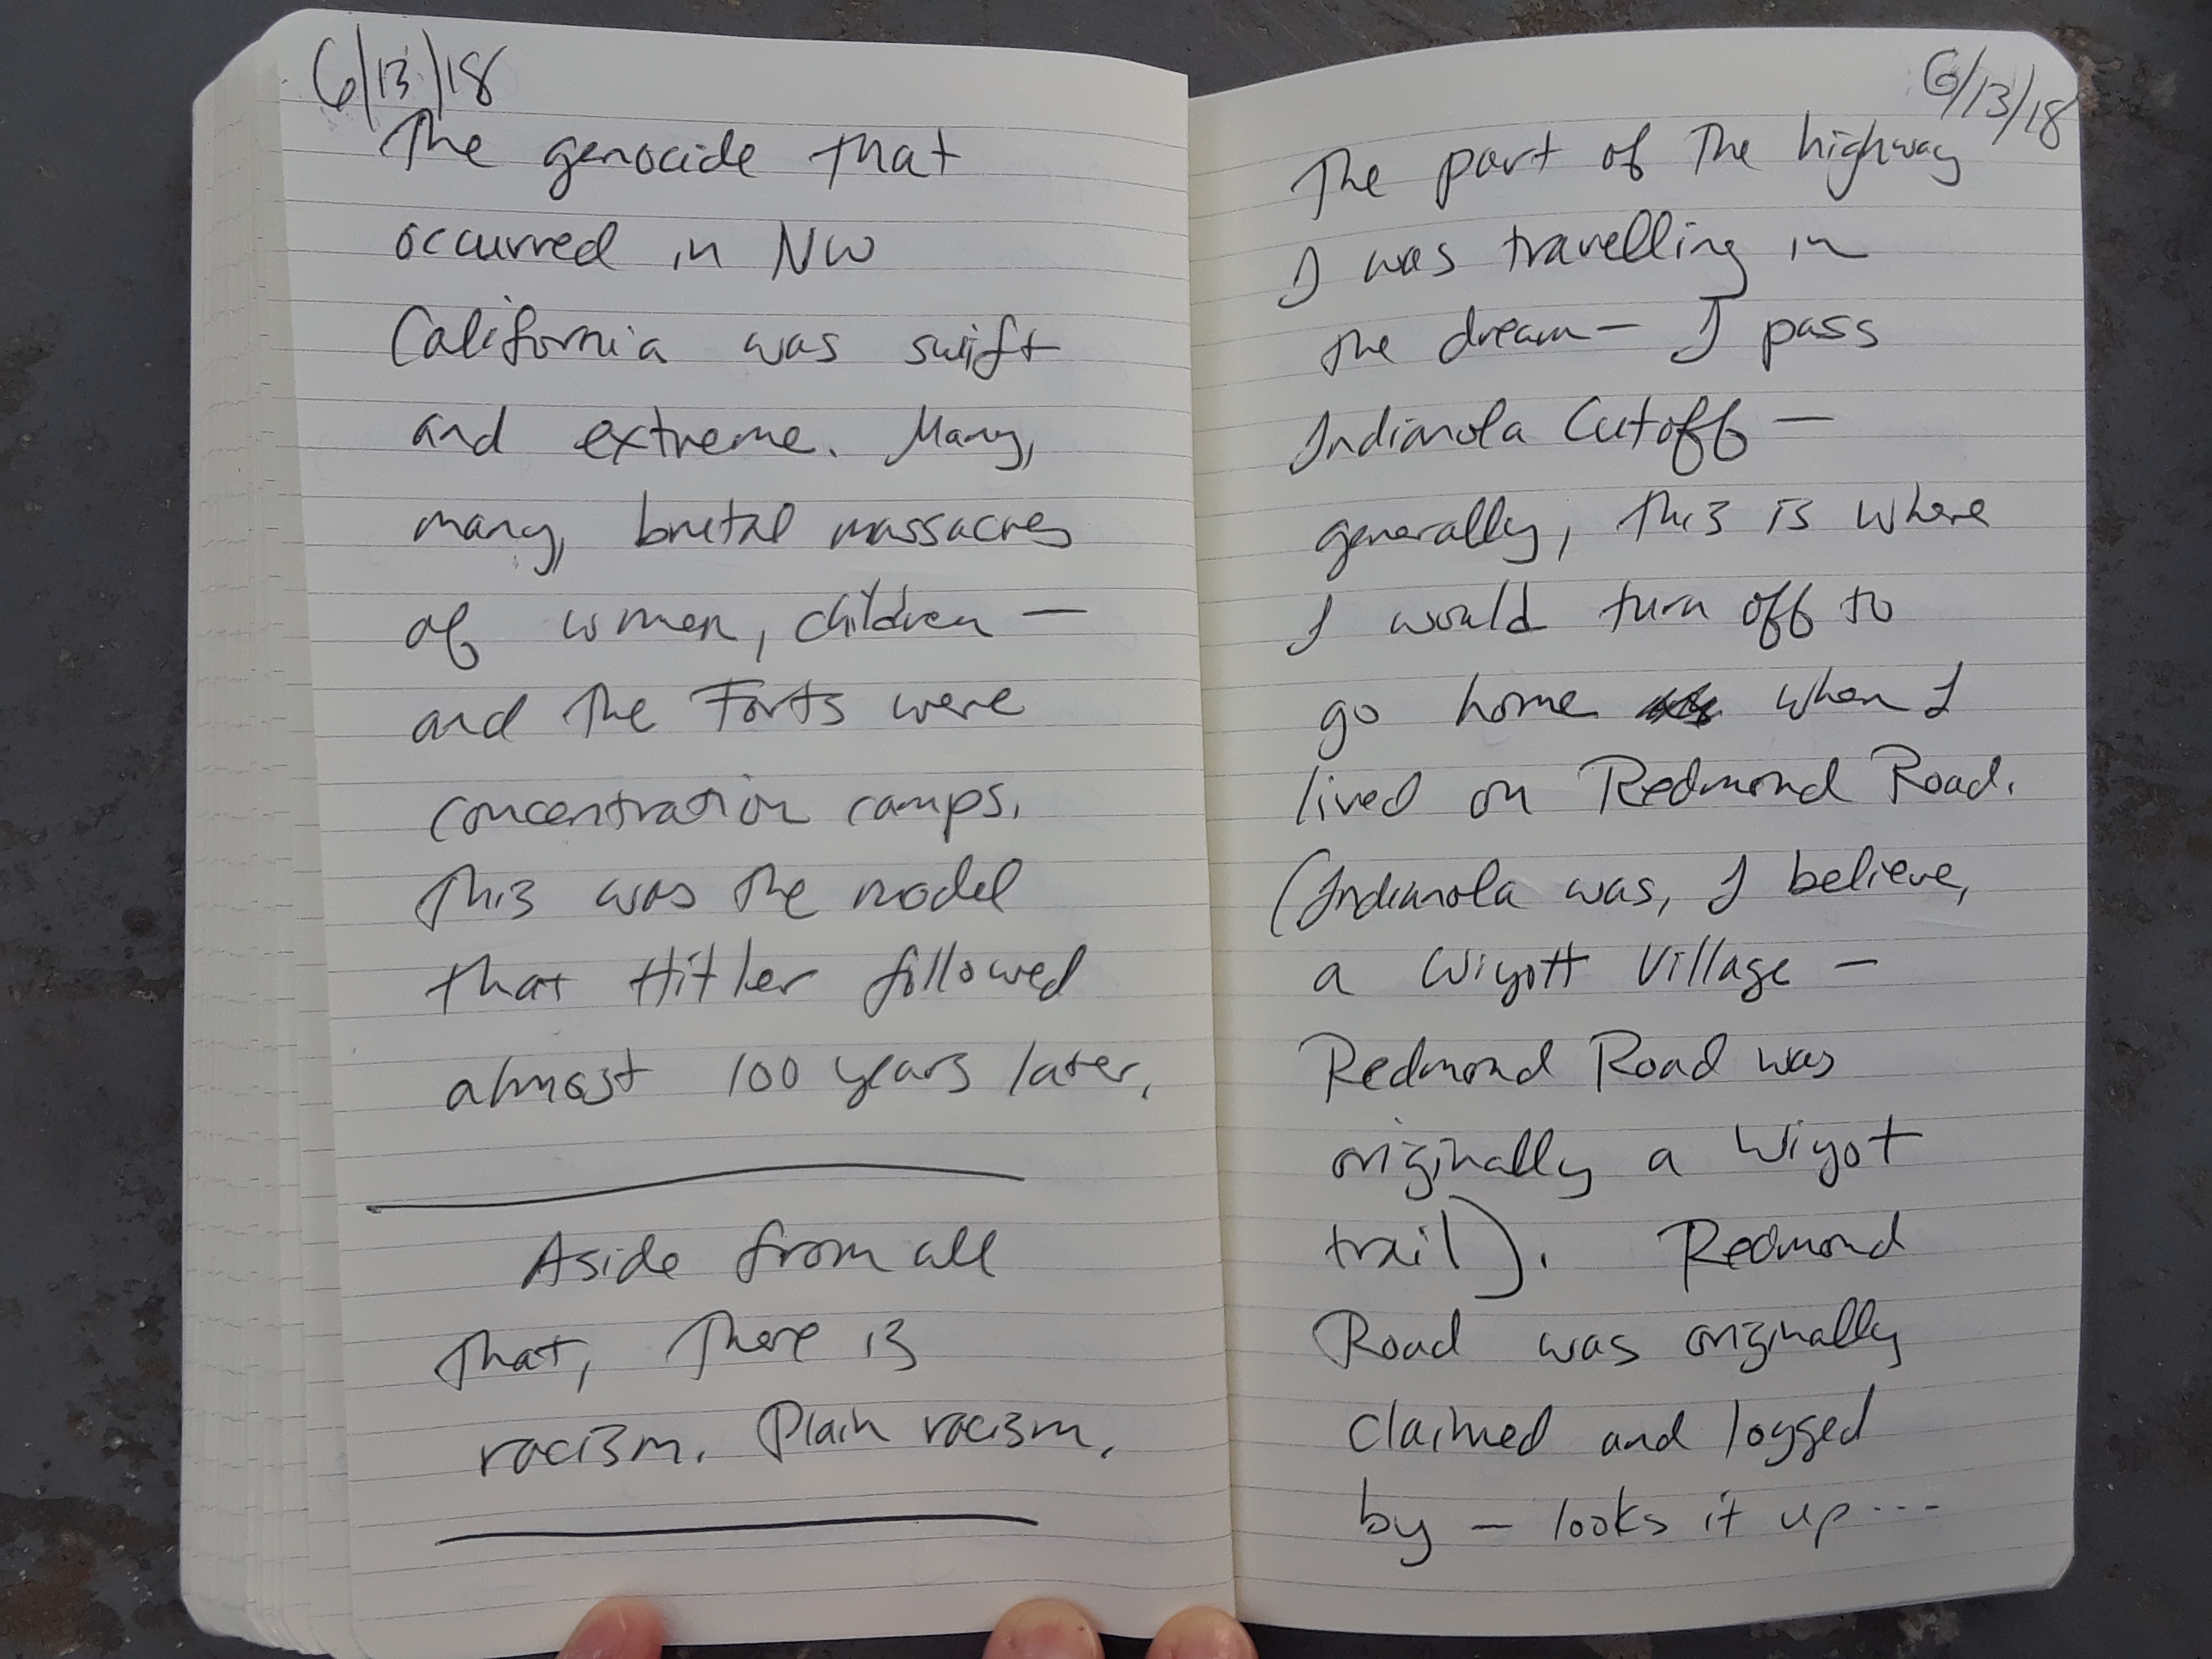 6/13/18
The genocide that
occurred in NW
California was swift
and extreme. Many,
many, brutal massacres
of women, children —
and the Forts were
concentration camps.
This was the model
that Hitler followed
almost 100 years later.
Aside from all
that, there is
racism. Plain racism.
6/13/18
The part of the highway
I was travelling in
the dream — I pass
Indianola Cutoff —
generally, this is where
I would turn off to
go home when I
lived on Redmond Road.
(Indianola was, I believe,
a Wiyott Village —
Redmond Road was
originally a Wiyot
trail). Redmond
Road was originally
claimed and logged
by — looks it up ....